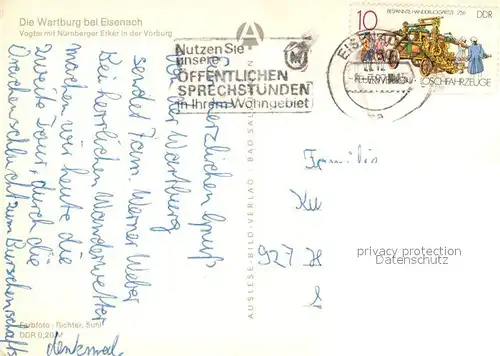 Die Wartburg bei Eisenach
Vogtei mit Nürnberger Erker in der Vorburg
Nutzen Sie
unsere
ÖFFENTLICHEN
SPRECHSTUNDEN
in Ihrem Wohngebiet
EISENACH
10
BESPANNTE HANDDRUCKSPRITZE
DDR
LÖSCHFAHRZEUGE
herzlichen Gruß
von der Wartburg
sendet Fam. Werner Weber
Bei herrlichem Wanderwetter
machen wir heute die
zweite Tour, durch die
Drachenschlucht zum Burschenschafts
denkmal.
AUSLESE-BILD-VERLAG · BAD SAL
Familie
Ku
927 H
S
privacy protection
Datenschutz
Farbfoto: Richter, Suhl
DDR 0,20 M